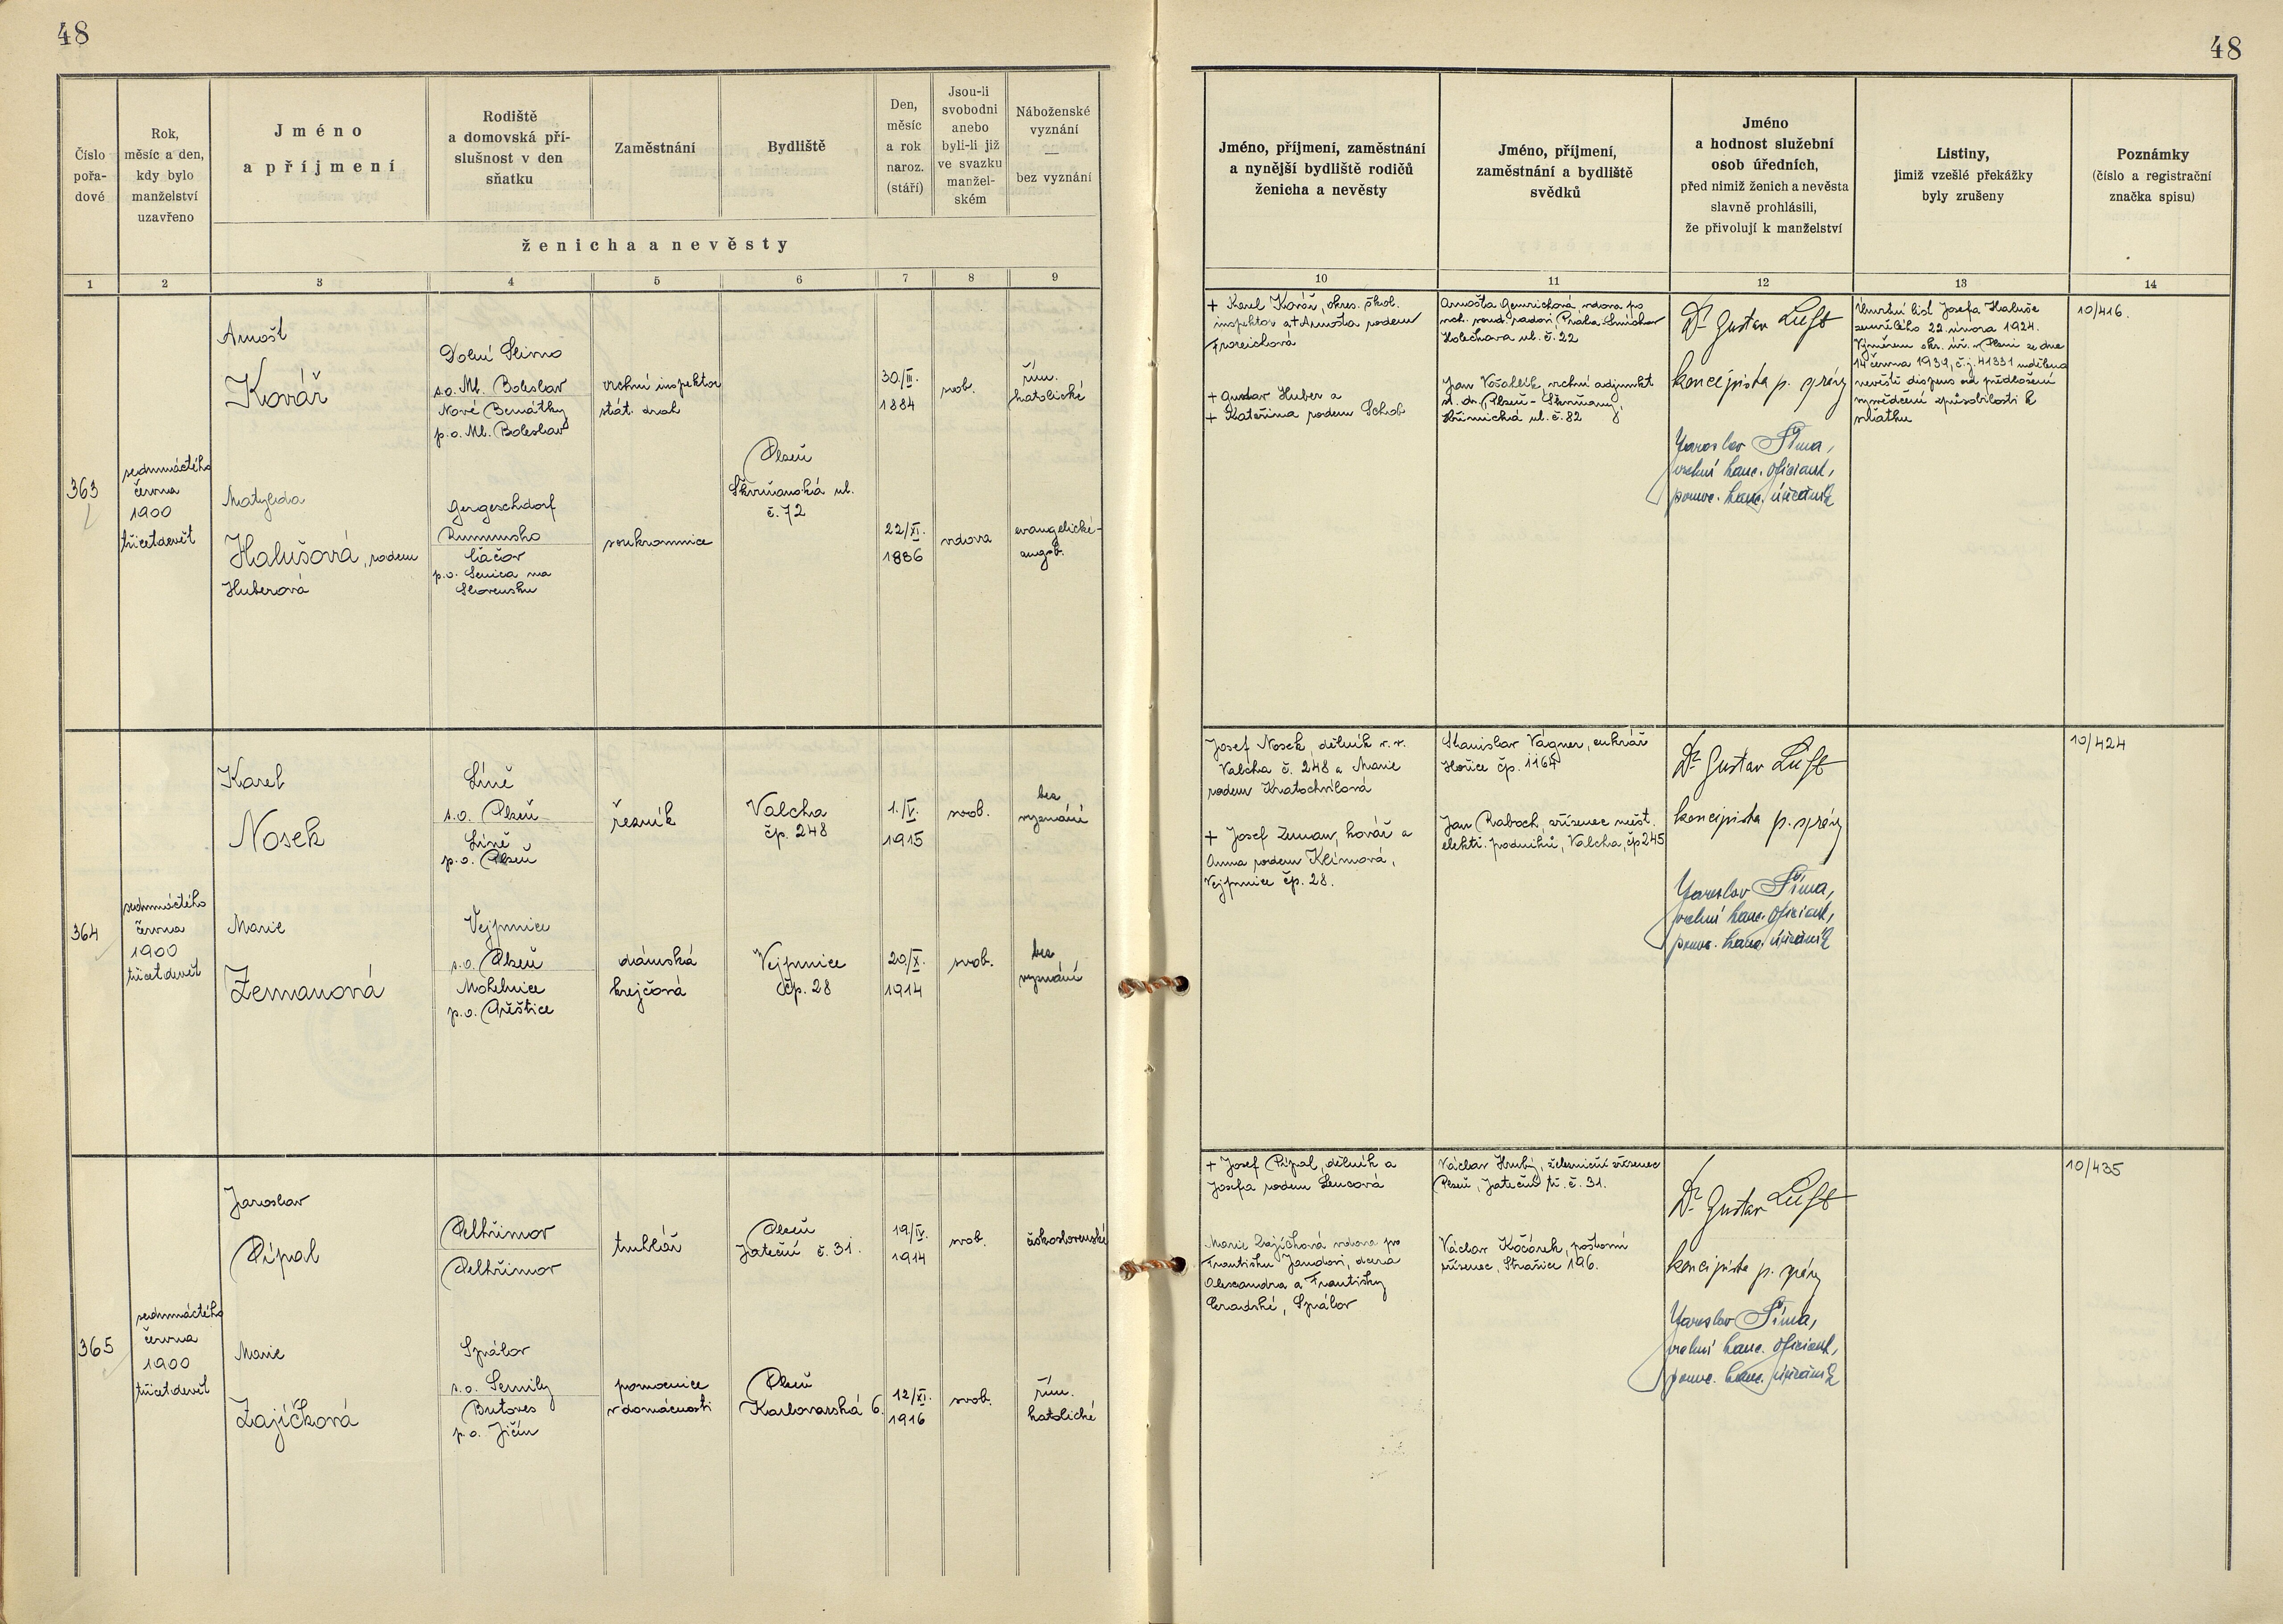 48
48
Číslo
pořa-
dové
Rok,
měsíc a den,
kdy bylo
manželství
uzavřeno
Jméno
a příjmení
Rodiště
a domovská pří-
slušnost v den
sňatku
Zaměstnání
Bydliště
Den,
měsíc
a rok
naroz.
(stáří)
Jsou-li
svobodni
anebo
byli-li již
ve svazku
manžel-
ském
Náboženské
vyznání
—
bez vyznání
ženicha a nevěsty
Jméno, příjmení, zaměstnání
a nynější bydliště rodičů
ženicha a nevěsty
Jméno, příjmení,
zaměstnání a bydliště
svědků
Jméno
a hodnost služební
osob úředních,
před nimiž ženich a nevěsta
slavně prohlásili,
že přivolují k manželství
Listiny,
jimiž vzešlé překážky
byly zrušeny
Poznámky
(číslo a registrační
značka spisu)
1 2 3 4 5 6 7 8 9
10 11 12 13 14
363
sedmnáctého
června
1900
třicetdevět
Arnošt
Kovář
Dolní Slivno
s.o. Ml. Boleslav
Nové Benátky
p.o. Ml. Boleslav
vrchní inspektor
stát. drah
30./III.
1884
svob.
řím.
katolické
Plzeň
Škvrňanská ul.
č. 72
Matylda
Halušová, rodem
Huberová
Gergeschdorf
Rumunsko
Čáčov
p.o. Senica na
Slovensku
soukromnice
22/XI.
1886
vdova
evangelické-
augsb.
+ Karel Kovář, okres. škol.
inspektor a + Arnošta rodem
+ Gustav Huber a
+ Kateřina rodem Schob
Arnošta vdova po
vrch. soud. radovi, Praha-Smíchov
Holečkova ul. č. 22
Jan vrchní adjunkt
st. dr., Plzeň-Škvrňany,
ul. č. 82
Dr. Gustav Luft
koncipista p. správy
Jaroslav Šíma,
vrchní kanc. oficiant,
pomoc. kanc. úředník
Úmrtní list Josefa Haluše
zemřelého 22. února 1924.
Výměrem okr. úř. v Plzni ze dne
14 června 1939, č.j. 41331 udělena
nevěstě dispens od předložení
vysvědčení způsobilosti k
sňatku
10/416.
364
sedmnáctého
června
1900
třicetdevět
Karel
Nosek
Líně
s.o. Plzeň
Líně
p.o. Plzeň
řezník
Valcha
čp. 248
1./V.
1915
svob.
bez
vyznání
Marie
Zemanová
Vejprnice
s.o. Plzeň
Moholnice
p.o. Přeštice
dámská
krejčová
Vejprnice
čp. 28
20/X.
1914
svob.
bez
vyznání
Josef Nosek, dělník v.v.
Valcha č. 248 a Marie
rodem Kratochvílová
+ Josef Zeman, kovář a
Anna rodem Klímová,
Vejprnice čp. 28.
Stanislav Vágner, cukrář
Hořice čp. 1164
Jan Raboch, zřízenec měst.
elektr. podniků, Valcha, čp 245
Dr. Gustav Luft
koncipista p. správy
Jaroslav Šíma,
vrchní kanc. oficiant,
pomoc. kanc. úředník
10/424
365
sedmnáctého
června
1900
třicetdevět
Jaroslav
Pípal
Pelhřimov
Pelhřimov
truhlář
Plzeň
Jateční č. 31.
19/IV.
1914
svob.
československé
Marie
Zajíčková
Spálov
s.o. Semily
Butoves
p.o. Jičín
pomocnice
v domácnosti
Plzeň
Karlovarská 6.
12/XI.
1916
svob.
řím.
katolické
+ Josef Pípal, dělník a
Josefa rodem Lencová
Marie Zajíčková vdova po
Františku Jandovi, dcera
Alexandra a Františky
Spálov
Václav Hrubý, železniční zřízenec
Plzeň, Jateční tř. č. 31.
Václav Kočárek, poštovní
zřízenec, Strašice 196.
Dr. Gustav Luft
koncipista p. správy
Jaroslav Šíma,
vrchní kanc. oficiant,
pomoc. kanc. úředník
10/435